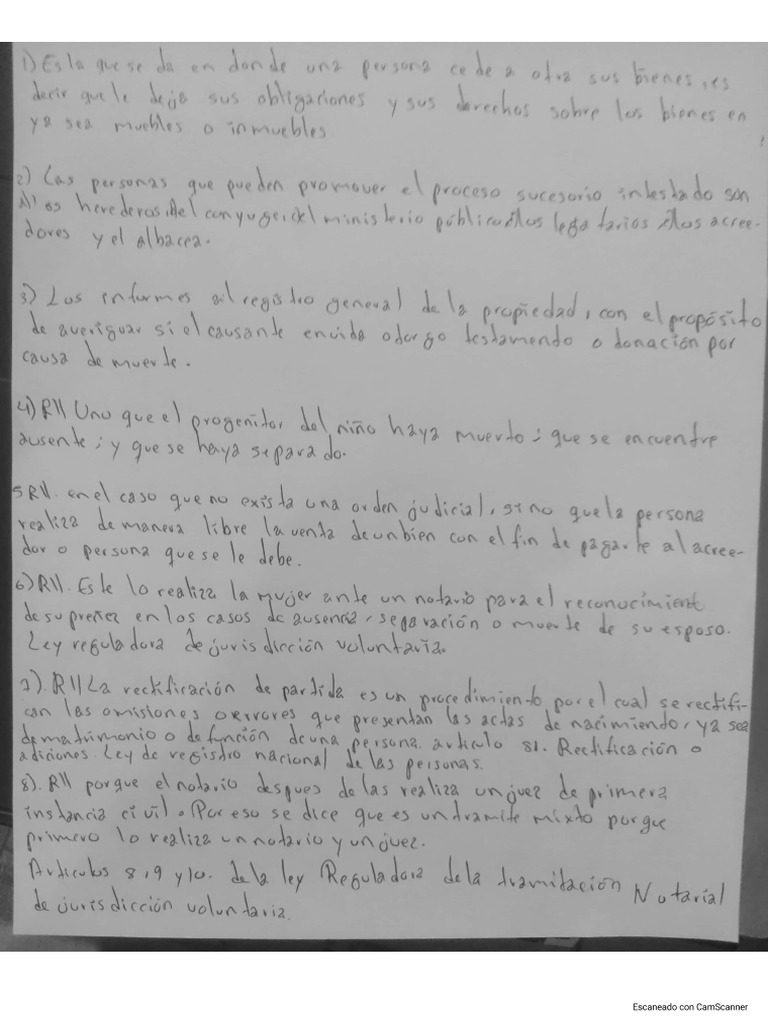 1) Es la que se da en donde una persona cede a otra sus bienes, es
decir que le deja sus obligaciones y sus derechos sobre los bienes en
ya sea muebles o inmuebles.
2) Las personas que pueden promover el proceso sucesorio intestado son
herederos, el conyuge, del ministerio público, los legatarios, los acree-
dores y el albacea.
3) Los informes al registro general de la propiedad, con el propósito
de averiguar si el causante en vida otorgo testamento o donación por
causa de muerte.
4) R// Uno que el progenitor del niño haya muerto; que se encuentre
ausente; y que se haya separado.
5 R//. en el caso que no exista una orden judicial, si no que la persona
realiza de manera libre la venta de un bien con el fin de pagarle al acree-
dor o persona que se le debe.
6) R//. Este lo realiza la mujer ante un notario para el reconocimiento
de su preñez en los casos de ausencia, separación o muerte de su esposo.
Ley reguladora de jurisdicción voluntaria.
7). R// La rectificación de partida es un procedimiento por el cual se rectifi-
can las omisiones o errores que presentan las actas de nacimiento, ya sea
de matrimonio o defunción de una persona. articulo 81. Rectificación o
adiciones. Ley de registro nacional de las personas.
8). R// porque el notario despues de las realiza un juez de primera
instancia civil. Por eso se dice que es un tramite mixto porque
primero lo realiza un notario y un juez.
Articulos 8, 9 y 10. de la ley Reguladora de la tramitación Notarial
de jurisdicción voluntaria.
Escaneado con CamScanner